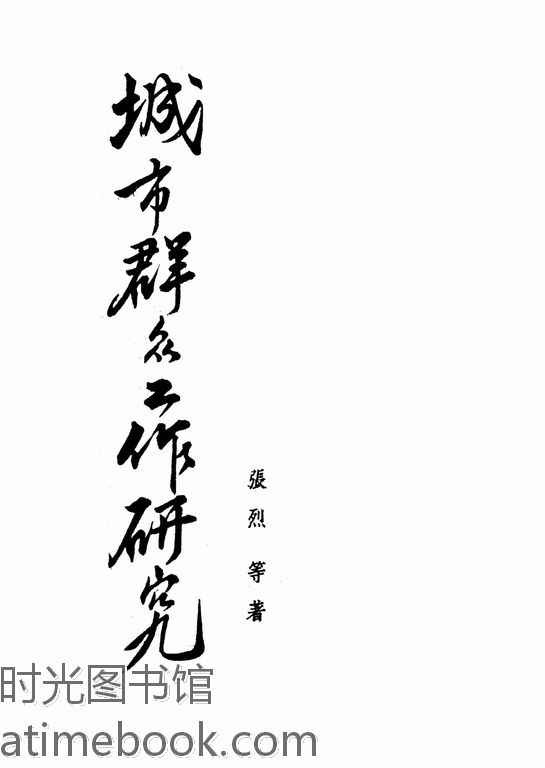 城市群众工作研究
張烈等著
时光图书馆
atimebook.com